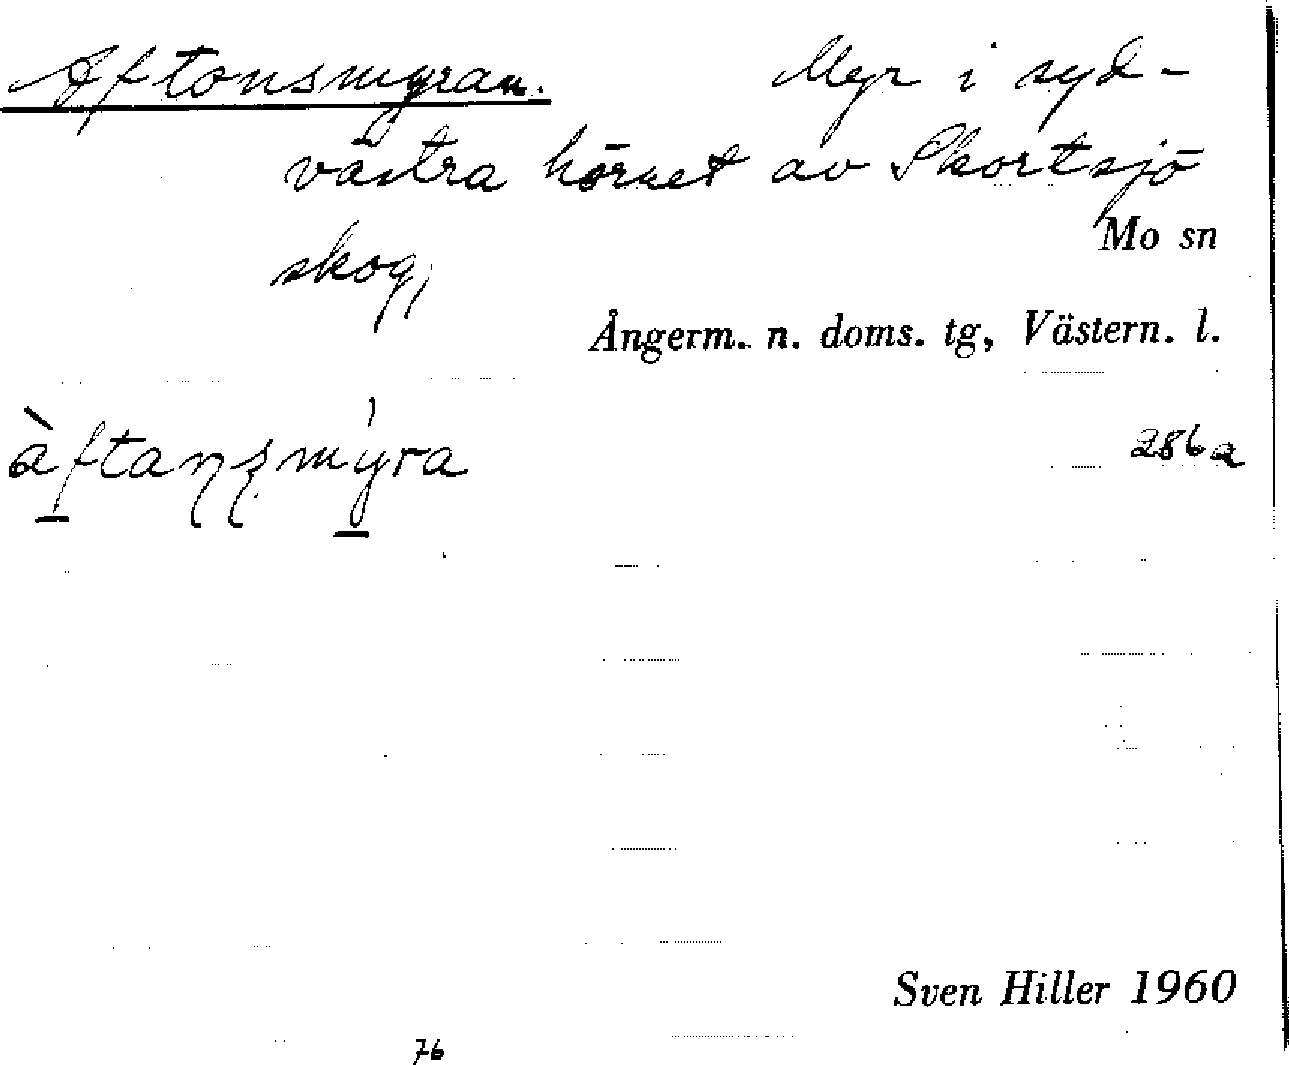 Aftonsmyran. Myr i syd-
västra hörnet av Skortsjö
skog,
Mo sn
Ångerm. n. doms. tg, Västern. l.
àftaɳʂmýra
286a
Sven Hiller 1960
76